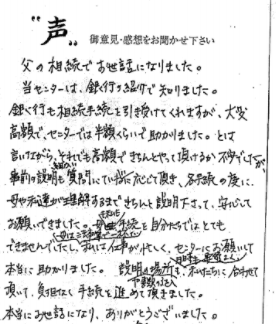 “声” 御意見・感想をお聞かせ下さい
父の相続でお世話になりました。
当センターは、銀行の紹介で知りました。
銀行も相続手続を引き受けてくれますが、大変
高額で、センターでは半額くらいで助かりました。とは
言いながら、それでも高額できちんとやって頂けるか不安でしたが、
事前の説明も質問にていねいに応じて頂き、各手続の度に、
母や私達が理解するまできちんと説明下さって、安心して
お願いできました。 手続を自分たちではとても
できませんでしたし、 仕事が忙しく、センターにお願いして
本当に助かりました。説明の場所も、私たちに合わせて
頂いて、負担なく手続を進めて頂きました。
本当にお世話になり、ありがとうございました。